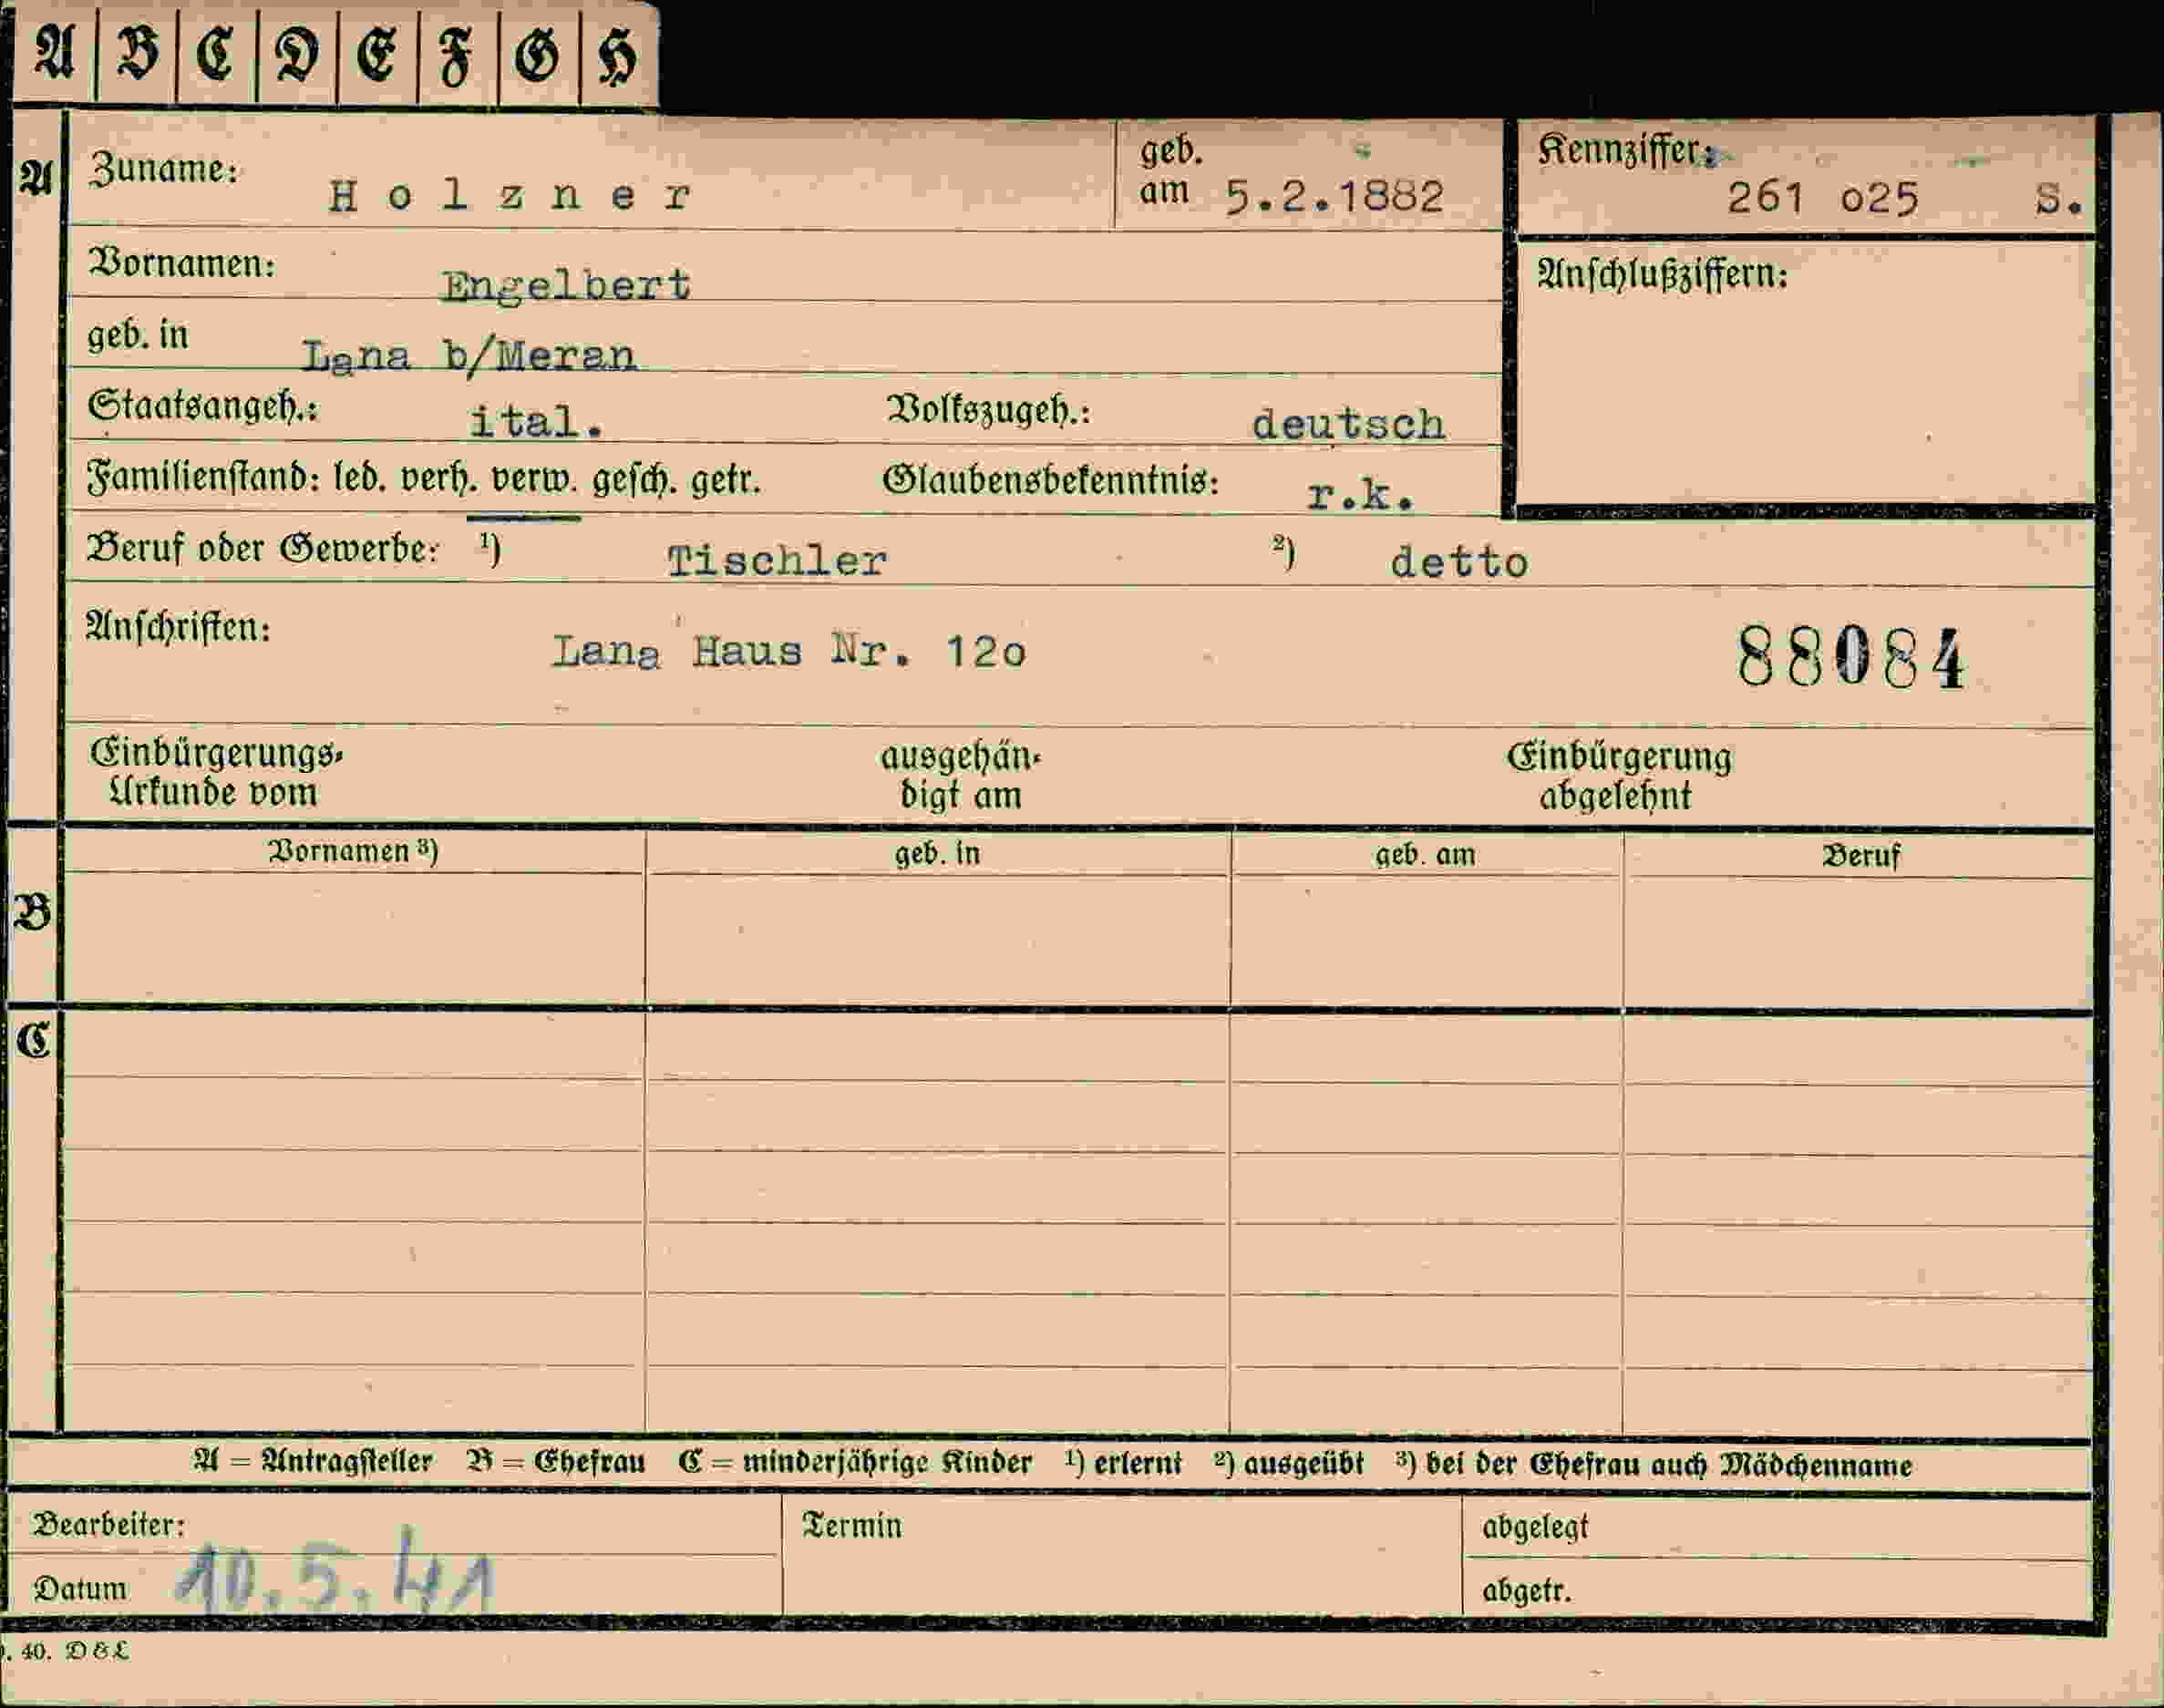 A B C D E F G H
A Zuname: Holzner geb. am 5.2.1882 Kennziffer: 261 o25 S.
Vornamen: Engelbert Anschlußziffern:
geb. in Lana b/Meran
Staatsangeh.: ital. Volkszugeh.: deutsch
Familienstand: led. verh. verw. gesch. getr. Glaubensbekenntnis: r.k.
Beruf oder Gewerbe: 1) Tischler 2) detto
Anschriften: Lana Haus Nr. 12o 88084
Einbürgerungs-Urkunde vom ausgehän-digt am Einbürgerung abgelehnt
Vornamen 3) geb. in geb. am Beruf
B
C
A = Antragsteller B = Ehefrau C = minderjährige Kinder 1) erlernt 2) ausgeübt 3) bei der Ehefrau auch Mädchenname
Bearbeiter: Termin abgelegt
Datum 10.5.41 abgetr.
. 40. D & L